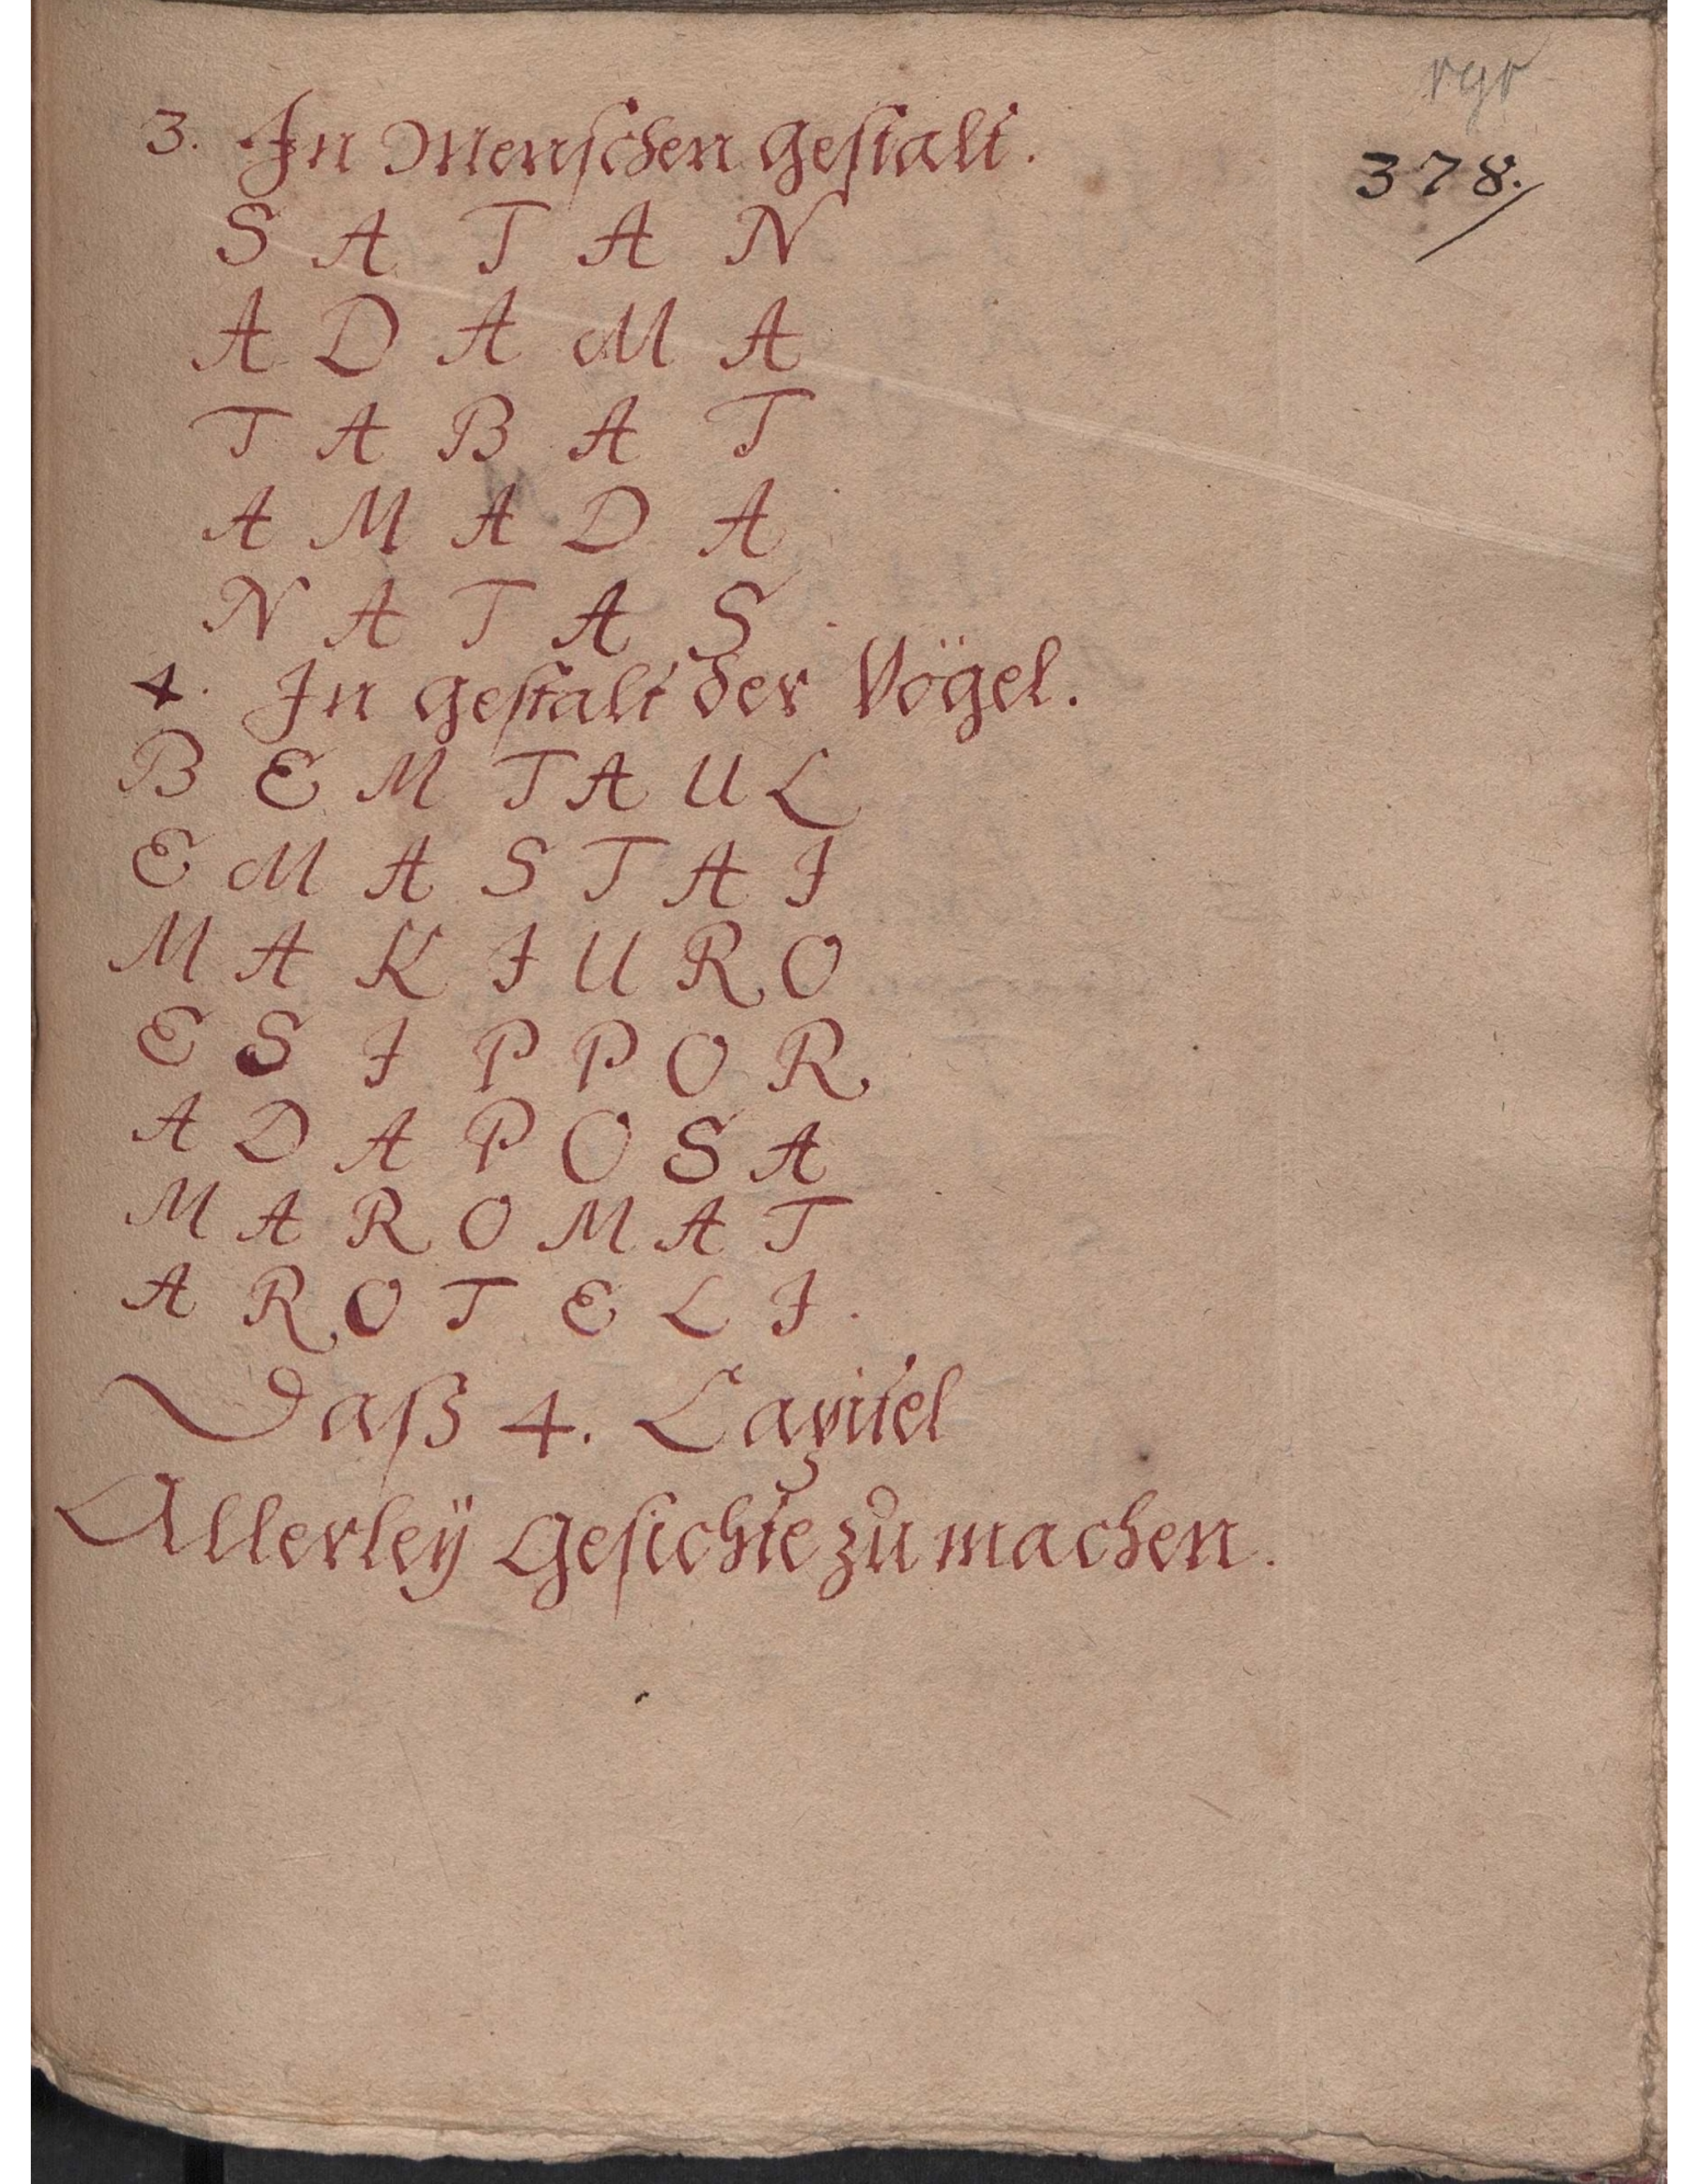 3. In Menschen gestalt.
378.
S A T A N
A D A M A
T A B A T
A M A D A
N A T A S.
4. In gestalt der Vögel.
B E M T A U L
E M A S T A I
M A K I U R O
E S I P P O R
A D A P O S A
M A R O M A T
A R O T E L I.
Daß 4. Capitel
Allerleÿ Gesichte zu machen.